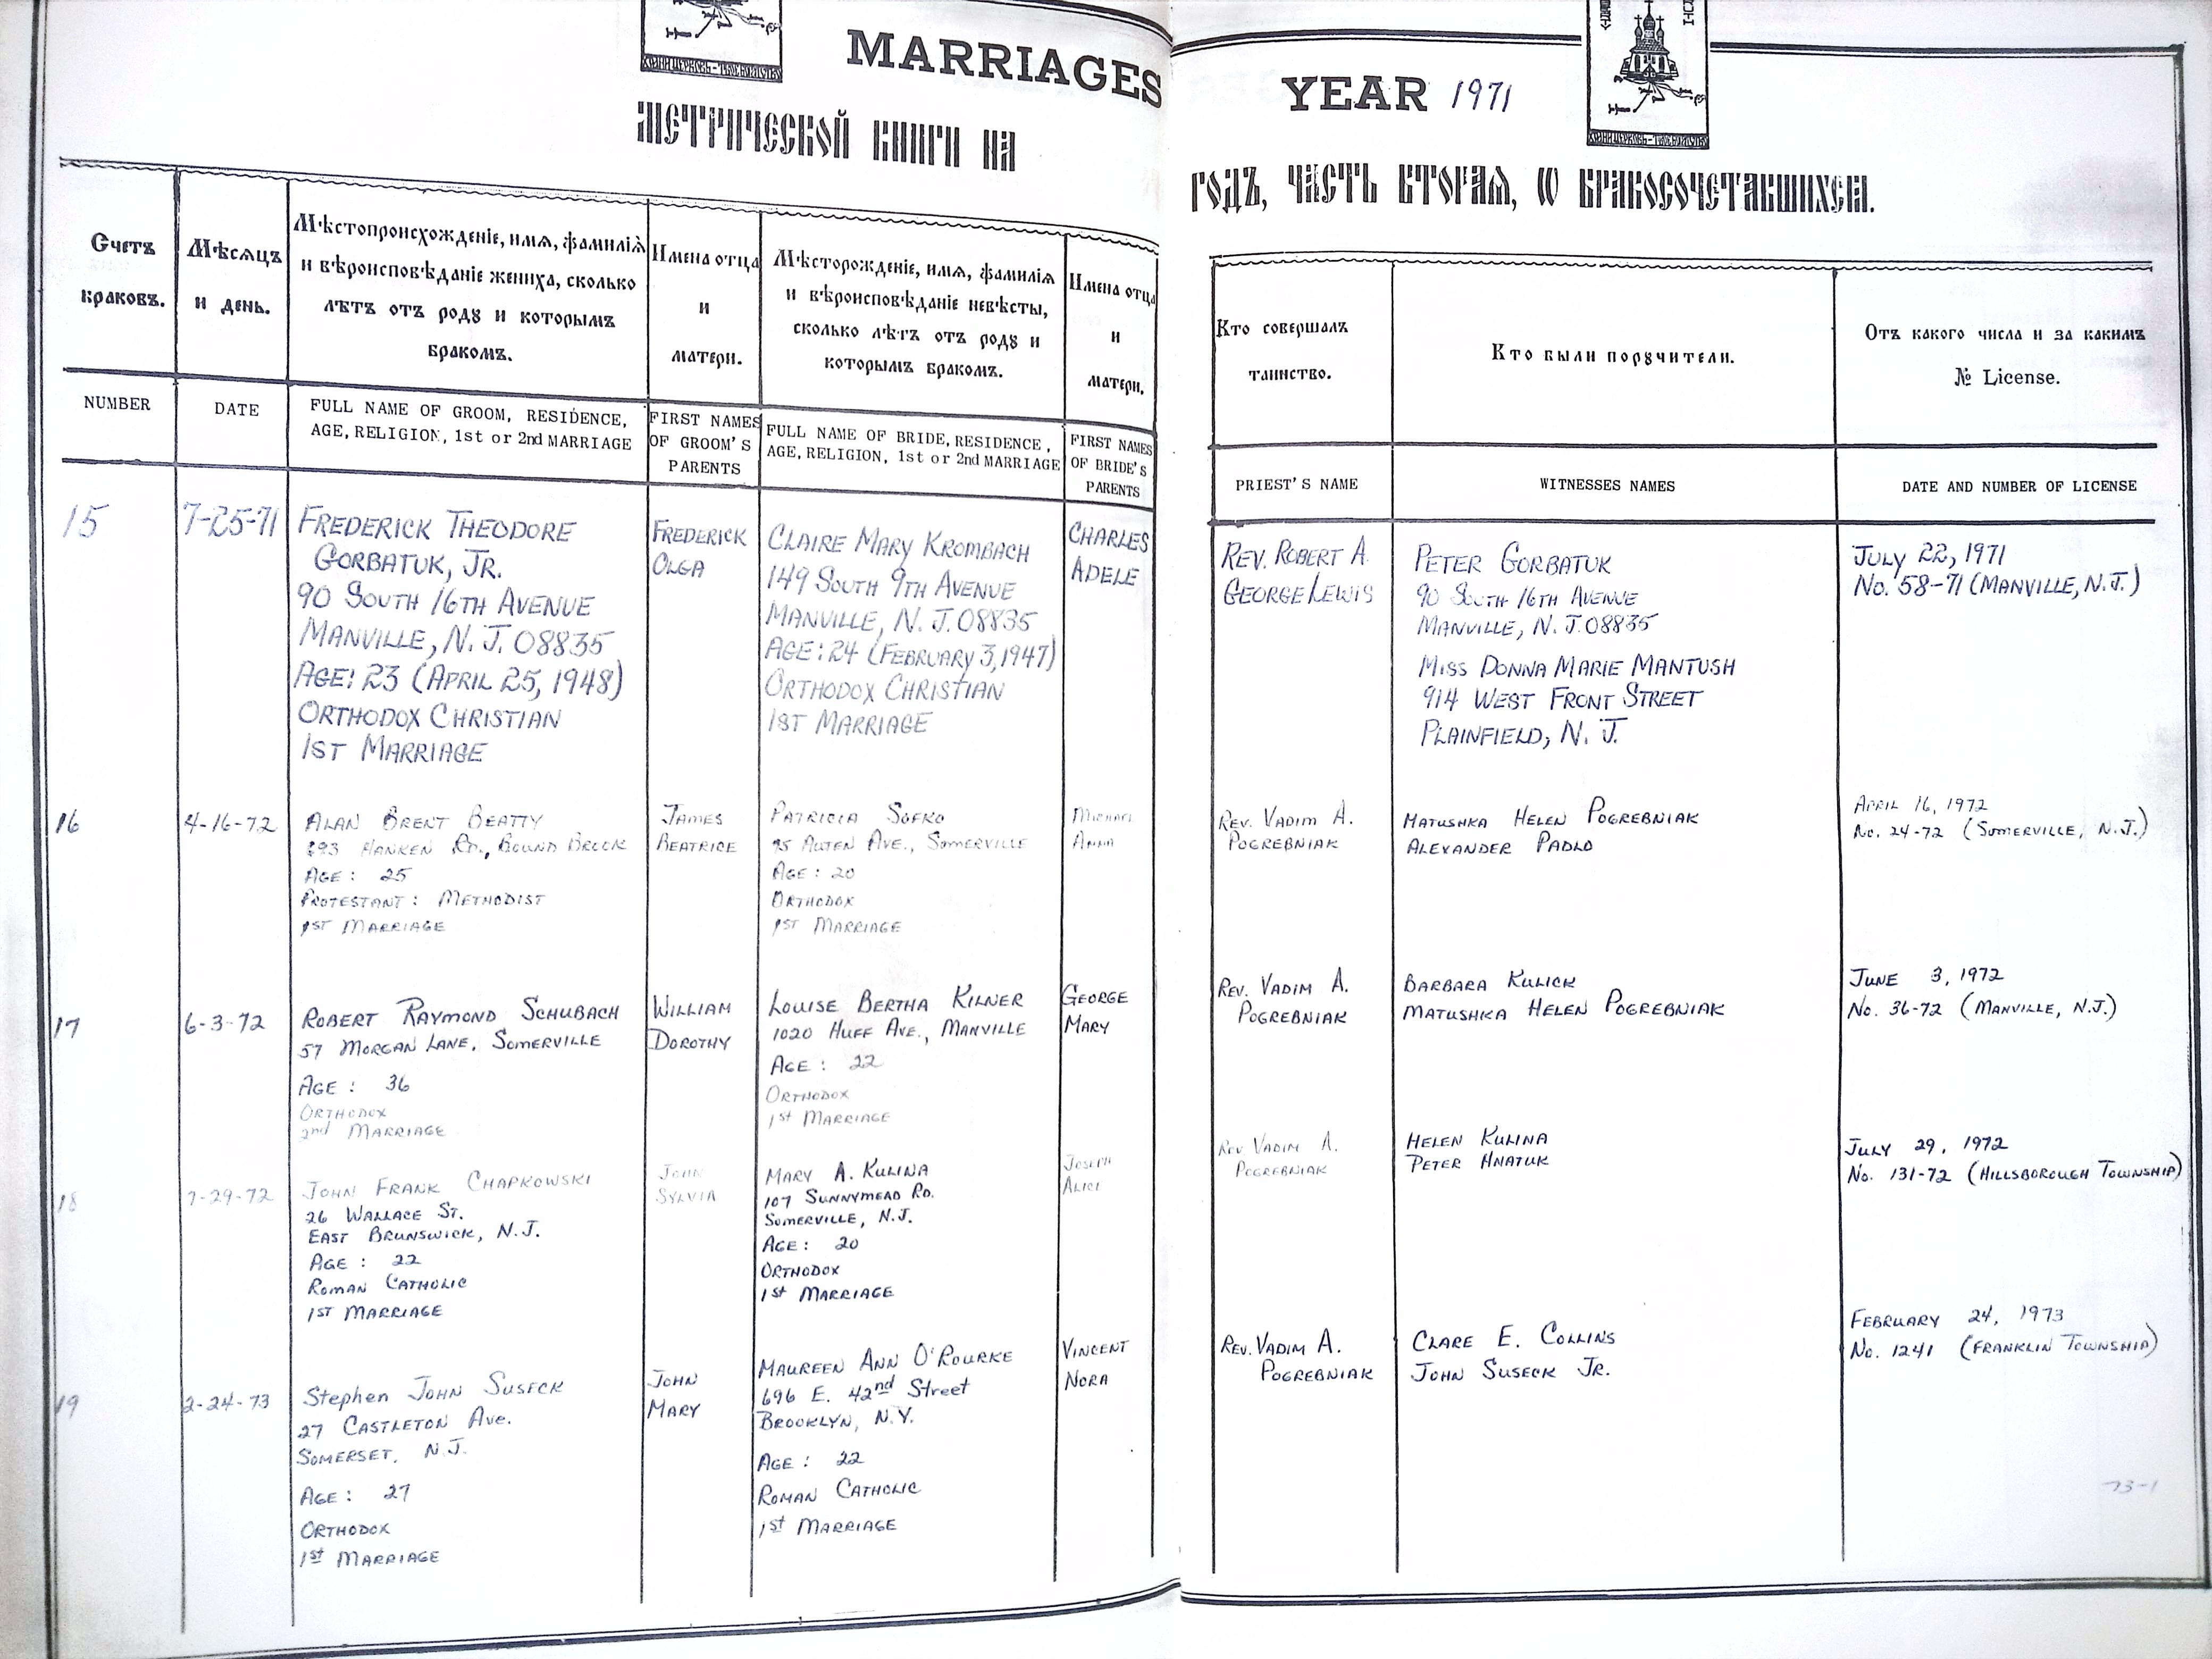 MARRIAGES
YEAR 1971
МЕТРИЧЕСКОЙ КНИГИ НА
ГОДЪ, ЧАСТЬ ВТОРАЯ, Ѡ БРАКОСОЧЕТАВШИХСЯ.
Счетъ
браковъ.
Мѣсяцъ
и день.
Мѣстопроисхожденіе, имя, фамилія
и вѣроисповѣданіе жениха, сколько
лѣтъ отъ роду и которымъ
бракомъ.
Имена отца
и
матери.
Мѣсторожденіе, имя, фамилія
и вѣроисповѣданіе невѣсты,
сколько лѣтъ отъ роду и
которымъ бракомъ.
Имена отца
и
матери.
Кто совершалъ
таинство.
Кто были поручители.
Отъ какого числа и за какимъ
№ License.
NUMBER
DATE
FULL NAME OF GROOM, RESIDENCE,
AGE, RELIGION, 1st or 2nd MARRIAGE
FIRST NAMES
OF GROOM'S
PARENTS
FULL NAME OF BRIDE, RESIDENCE,
AGE, RELIGION, 1st or 2nd MARRIAGE
FIRST NAMES
OF BRIDE'S
PARENTS
PRIEST'S NAME
WITNESSES NAMES
DATE AND NUMBER OF LICENSE
15
7-25-71
FREDERICK THEODORE
GORBATUK, JR.
90 SOUTH 16TH AVENUE
MANVILLE, N.J. 08835
AGE: 23 (APRIL 25, 1948)
ORTHODOX CHRISTIAN
1ST MARRIAGE
FREDERICK
OLGA
CLAIRE MARY KROMBACH
149 SOUTH 9TH AVENUE
MANVILLE, N.J. 08835
AGE: 24 (FEBRUARY 3, 1947)
ORTHODOX CHRISTIAN
1ST MARRIAGE
CHARLES
ADELE
REV. ROBERT A.
GEORGE LEWIS
PETER GORBATUK
90 SOUTH 16TH AVENUE
MANVILLE, N.J. 08835
MISS DONNA MARIE MANTUSH
914 WEST FRONT STREET
PLAINFIELD, N.J.
JULY 22, 1971
No. 58-71 (MANVILLE, N.J.)
16
4-16-72
ALAN BRENT BEATTY
HANKEN RD., BOUND BROOK
AGE: 25
PROTESTANT: METHODIST
1ST MARRIAGE
JAMES
BEATRICE
PATRICIA SOFKO
AVE., SOMERVILLE
AGE: 20
ORTHODOX
1ST MARRIAGE
MICHAEL
ANNA
REV. VADIM A.
POGREBNIAK
MATUSHKA HELEN POGREBNIAK
ALEXANDER PADLO
APRIL 16, 1972
No. 24-72 (SOMERVILLE, N.J.)
17
6-3-72
ROBERT RAYMOND SCHUBACH
57 MORGAN LANE, SOMERVILLE
AGE: 36
ORTHODOX
2nd MARRIAGE
WILLIAM
DOROTHY
LOUISE BERTHA KILNER
1020 HUFF AVE., MANVILLE
AGE: 22
ORTHODOX
1st MARRIAGE
GEORGE
MARY
REV. VADIM A.
POGREBNIAK
BARBARA KULICK
MATUSHKA HELEN POGREBNIAK
JUNE 3, 1972
No. 36-72 (MANVILLE, N.J.)
18
7-29-72
JOHN FRANK CHAPKOWSKI
26 WALLACE ST.
EAST BRUNSWICK, N.J.
AGE: 22
ROMAN CATHOLIC
1ST MARRIAGE
JOHN
SYLVIA
MARY A. KULINA
107 SUNNYMEAD RD.
SOMERVILLE, N.J.
AGE: 20
ORTHODOX
1st MARRIAGE
JOSEPH
ALICE
REV VADIM A.
POGREBNIAK
HELEN KULINA
PETER HNATUK
JULY 29, 1972
No. 131-72 (HILLSBOROUGH TOWNSHIP)
19
2-24-73
Stephen JOHN SUSECK
27 CASTLETON Ave.
SOMERSET, N.J.
AGE: 27
ORTHODOX
1st MARRIAGE
JOHN
MARY
MAUREEN ANN O'ROURKE
696 E. 42nd Street
BROOKLYN, N.Y.
AGE: 22
ROMAN CATHOLIC
1st MARRIAGE
VINCENT
NORA
REV. VADIM A.
POGREBNIAK
CLARE E. COLLINS
JOHN SUSECK JR.
FEBRUARY 24, 1973
No. 1241 (FRANKLIN TOWNSHIP)
73-1